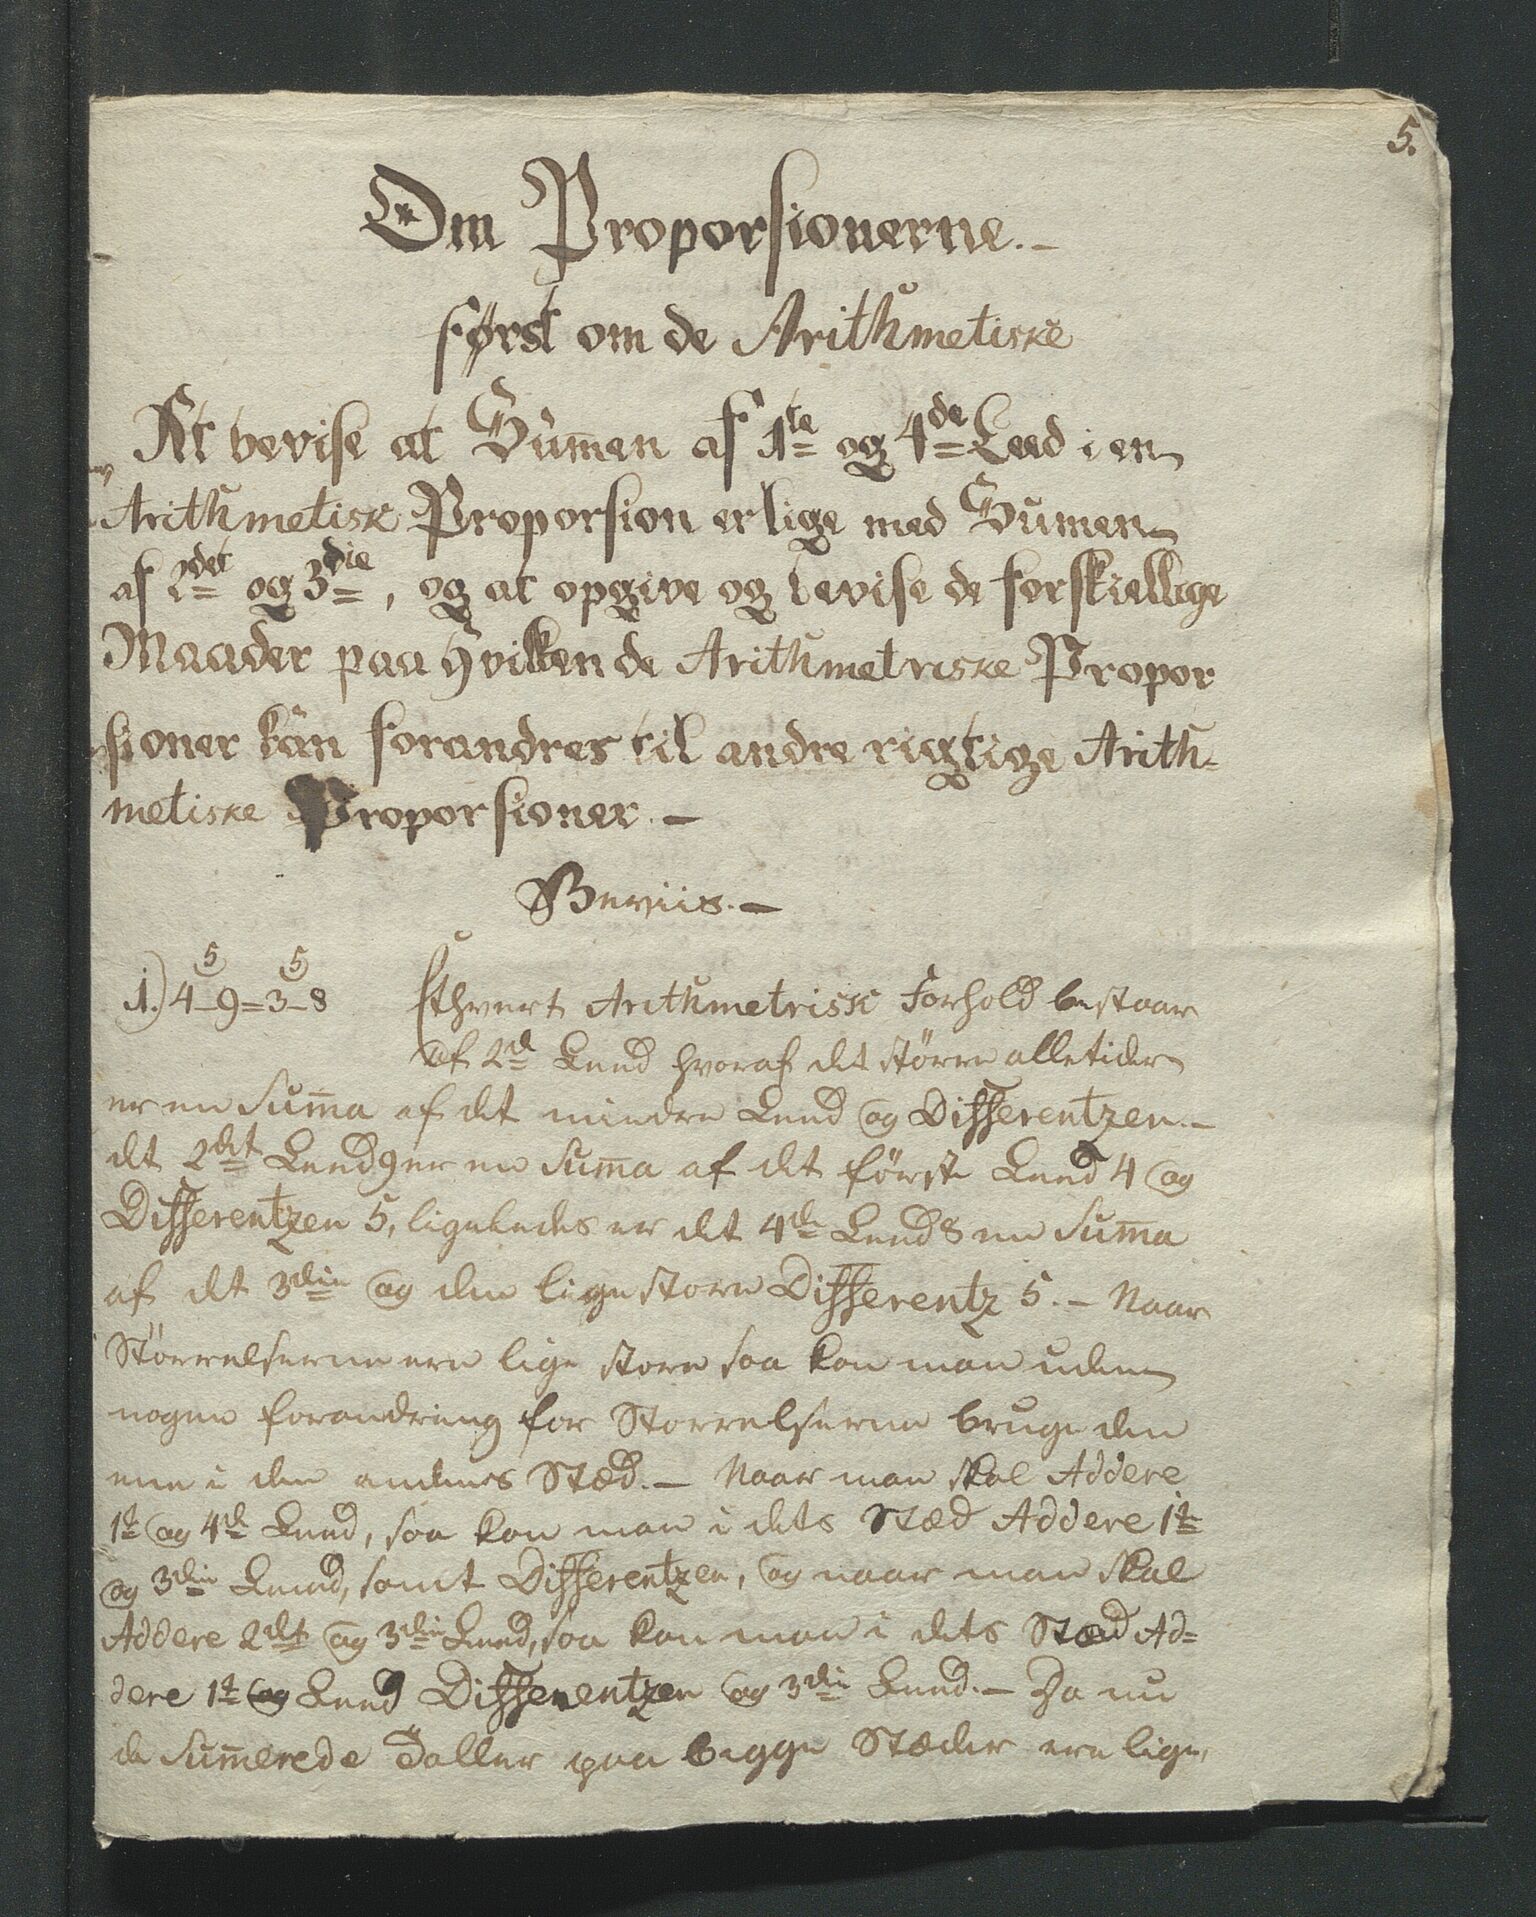 5.
Om Proporsionerne.-
først om de Arithmetiske
At bevise at Sum̄en af 1te og 4de Leed i en
Arithmetisk Proporsion er lige med Sumen
af 2det og 3die, og at opgive og bevise de forskiellige
Maader paa hvilken de Arithmetriske Propor
sioner kan forandres til andre rigtige Arith-
metiske Proporsioner.-
Beviis.-
5 5
1.) 4-9=3-8 Ethvert Arithmetrisk Forhold bestaar
af 2de Leed hvoraf det större alletider
er en Sum̄a af det mindre Leed og Differentzen.-
det 2det Leed 9 er en Sum̄a af det förste Leed 4 og
Differentzen 5, ligeledes er det 4de Leed 8 en Sum̄a
af det 3die og den lige store Differentz 5.- Naar
Störrelserne ere lige store saa kan man uden
nogen forandring for Storrelserne bruge den
ene i den andens Stæd.- Naar man skal Addere
1te og 4de Leed, saa kan man i dets Stæd Addere 1te
og 3die Leed, samt Differentzen, og naar man skal
Addere 2det og 3die Leed, saa kan man i dets Stæd Ad=
dere 1te og Leed Differentzen og 3die Leed.- Da nu
de Sum̄erede Taller paa begge Stæder ere lige,